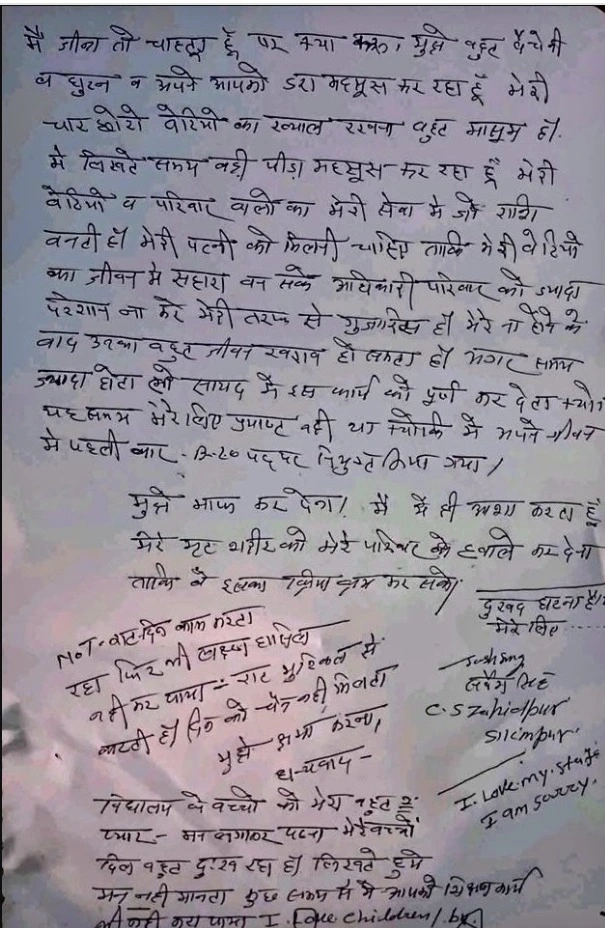 मै जीना तो चाहता हूँ पर क्या करू, मुझे बहुत बैचेनी
व घुटन व अपने आपको डरा महसूस कर रहा हूँ मेरी
चार छोटी बेटियो का ख्याल रखना बहुत मासूम हो.
मे लिखते समय बडी पीडा महसूस कर रहा हूँ मेरी
बेटियो व परिवार वालो का मेरी सेवा मे जो राशि
बनती हो मेरी पत्नी को मिलनी चाहिए ताकि मेरी बेटियो
का जीवन मे सहारा बन सके अधिकारी परिवार को ज्यादा
परेशान ना करे मेरी तरफ से गुजारिस हो मेरे ना होने के
बाद उनका बहुत जीवन खराब हो सकता हो मगर समय
ज्यादा होता तो सायद मै इस कार्य को पुर्ण कर देता क्योकि
यह समय मेरे लिए प्रयाप्ट नही था क्योकि मै अपने जीवन
मे पहली बार - B-LO पद पर नियुक्त किया गया।
मुझे माफ कर देना! मै ये ही आशा करता हूँ
मेरे मृत शरीर को मेरे परिवार के हवाले कर देना
ताकि वे इसका क्रिया कर सके।
दुखद घटना है।
मेरे लिए
NOT- रात दिन काम करता
रहा फिर भी लक्ष्य हासिल
नही कर पाया - रात मुश्किल से
काटती हो दिन को चैन नही मिलता
मुझे क्षमा करना,
धन्यवाद -
सिंह
C.S
I. Love. my. 
I am sorry.
विद्यालय के बच्चो को मेरा बहुत २
प्यार - मन लगाकर पढना मेरे बच्चो
दिल बहुत दुःख रहा हो लिखते हुये
मन नही मानता कुछ समय से मै आपको शिक्षण कार्य
भी नही करा पाया I. Love children/.